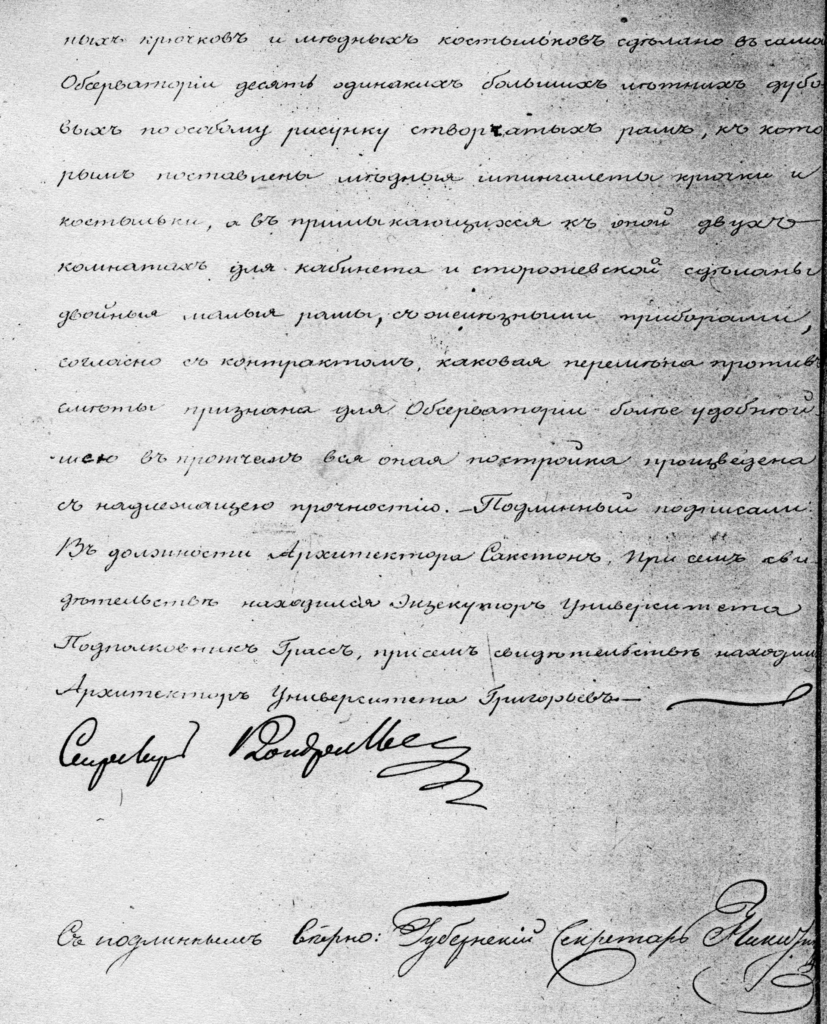 ныхъ крючковъ и мѣдныхъ костыльковъ сдѣлано въ само
Обсерваторіи десять одинакихъ большихъ лѣтнихъ дубо
выхъ по особому рисунку створчатыхъ рамъ, къ кото
рымъ поставлены мѣдныя шпингалеты крючки и
костыльки, а въ примыкающихся къ оной двухъ
комнатахъ для кабинета и сторожевской сдѣланы
двойныя малыя рамы, съ желѣзными приборами,
согласно съ контрактомъ, каковая перемѣна противъ
смѣты признана для Обсерваторіи болѣе удобнѣй
шею въ протчемъ вся оная постройка произведена
съ надлежащею прочностію. – Подлинный подписали:
Въ должности Архитектора Сакстонъ, При семъ сви
дѣтельствѣ находился Экзекуторъ Университета
Подполковникъ Грассъ, при семъ свидѣтельствѣ находил
Архитекторъ Университета Григорьевъ —
Секретарь
Съ подлиннымъ вѣрно: Губернскій Секретарь